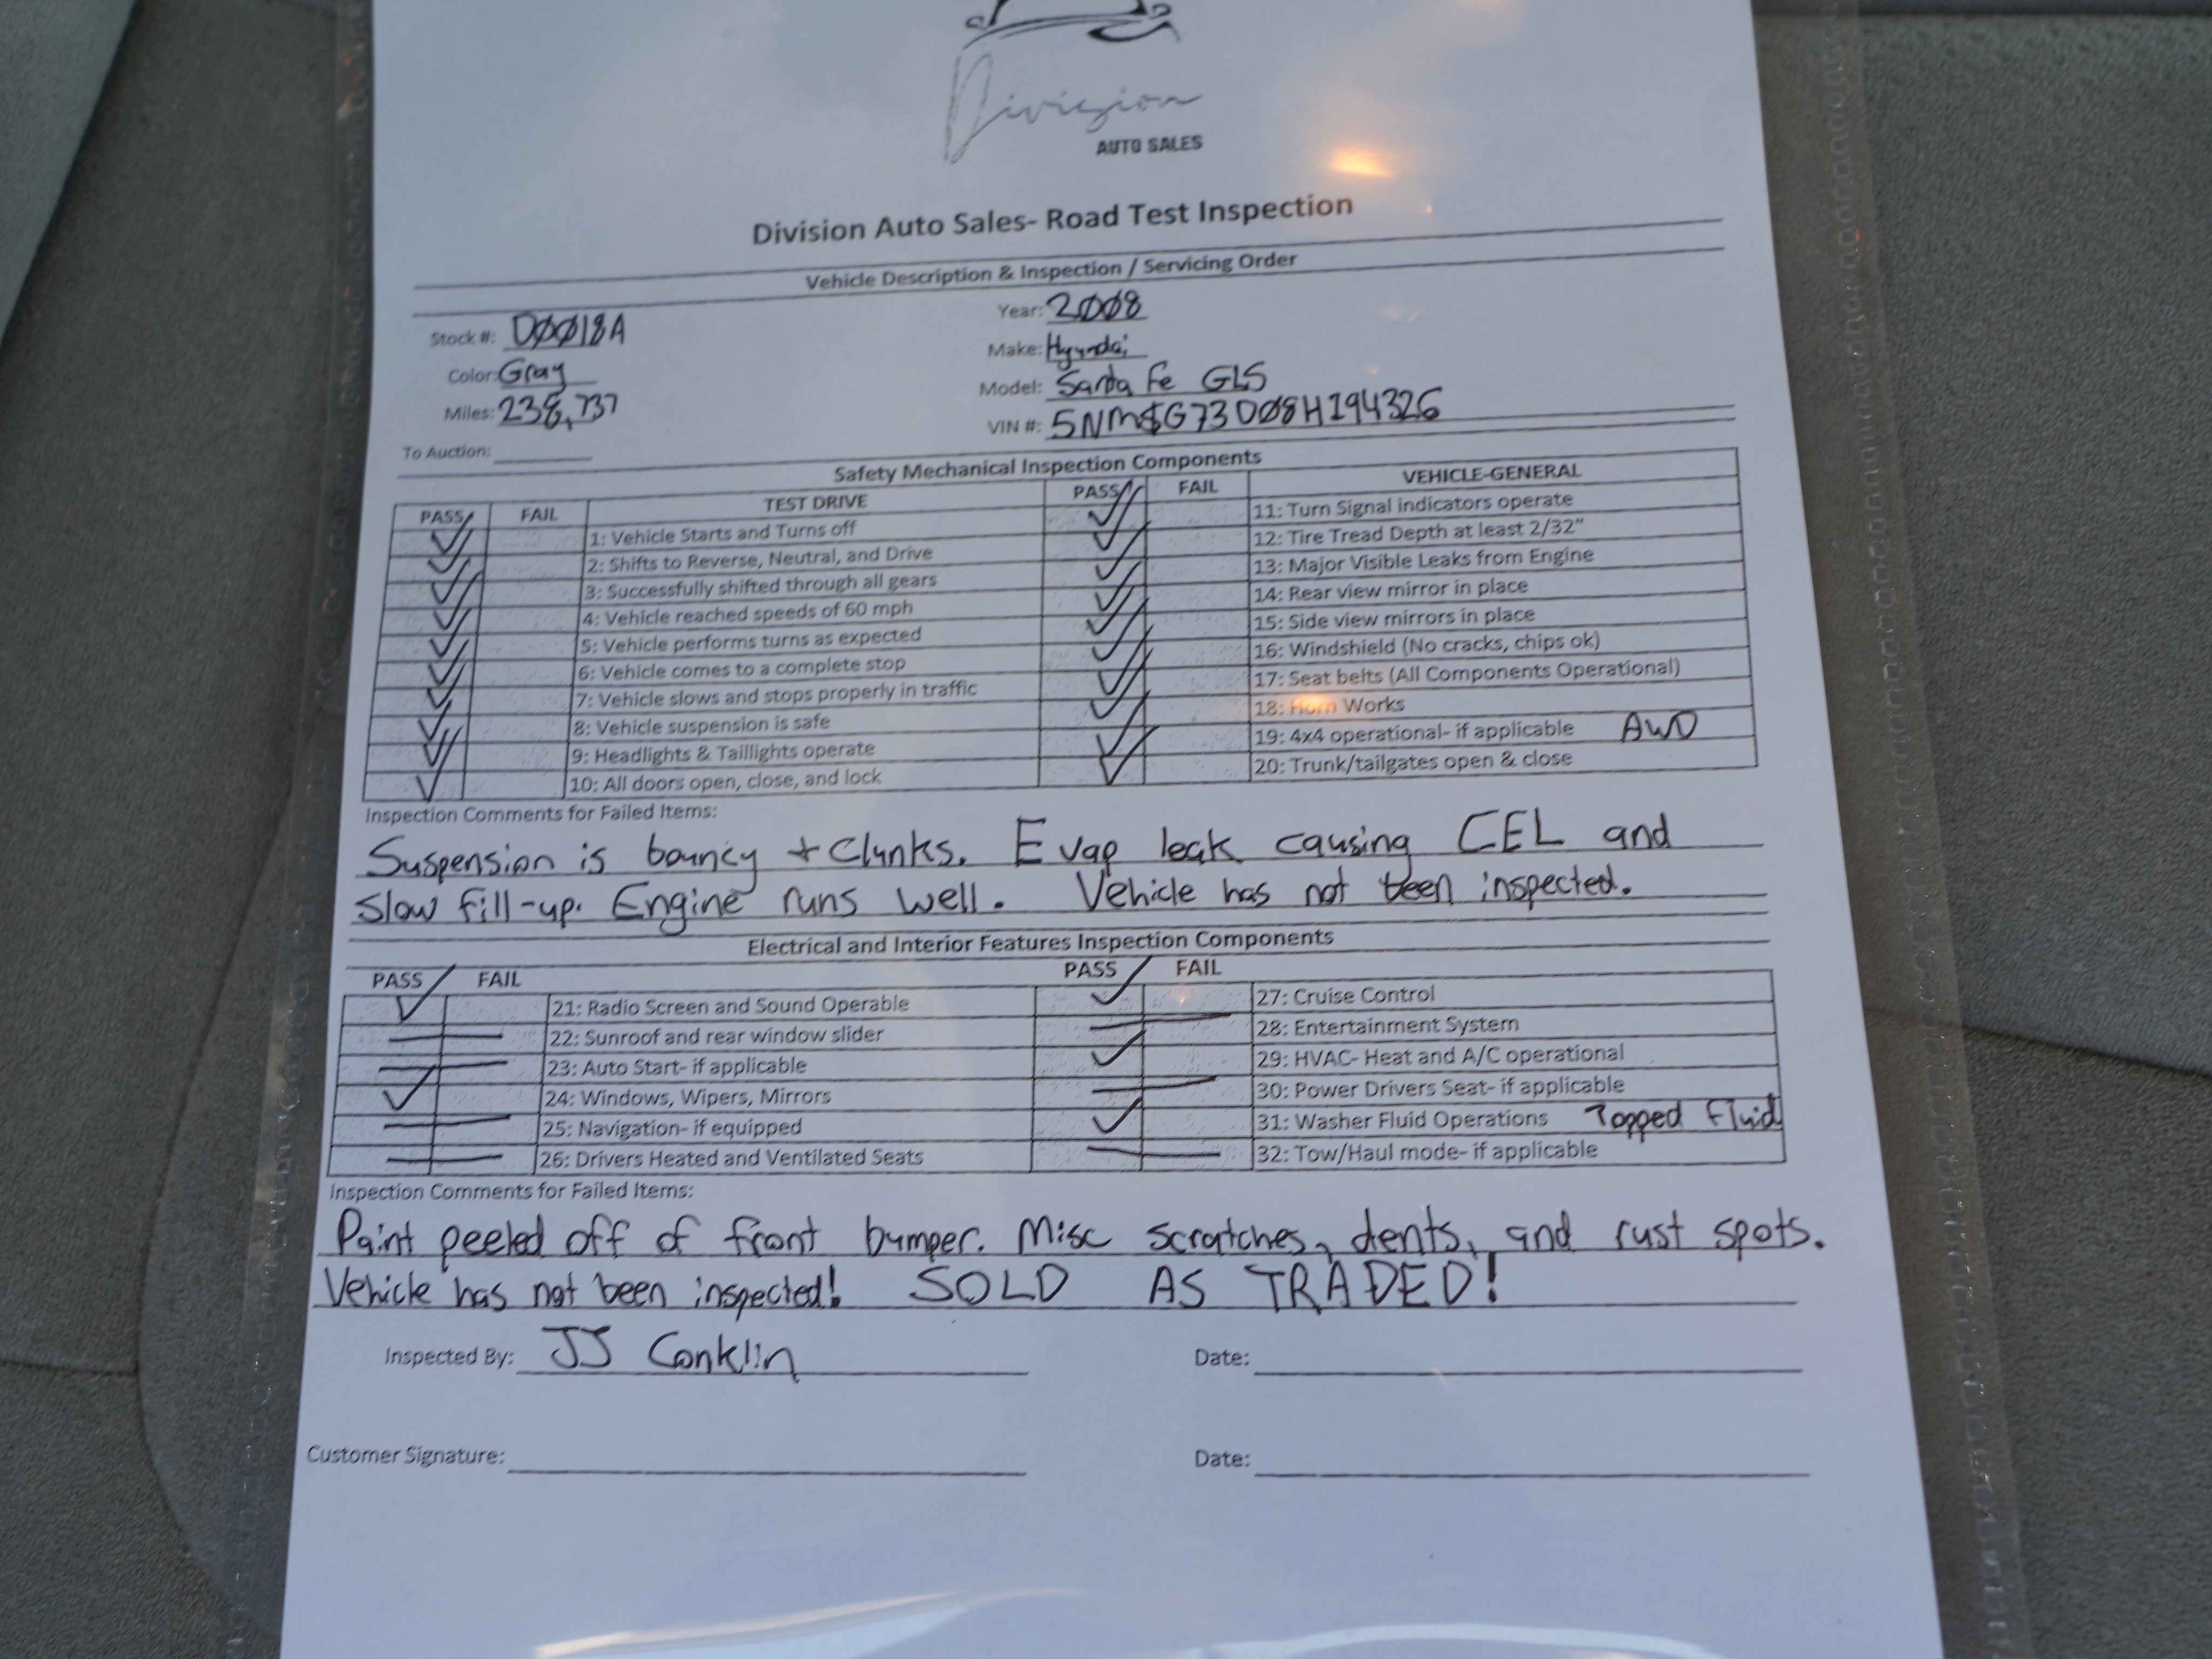 Division
AUTO SALES
Division Auto Sales- Road Test Inspection
Vehicle Description & Inspection / Servicing Order
Stock #: D0018A Year: 2008
Color: Gray Make: Hyundai
Miles: 238,737 Model: Santa Fe GLS
To Auction: VIN #: 5NMSG73D08H194326
Safety Mechanical Inspection Components
PASS FAIL TEST DRIVE PASS FAIL VEHICLE-GENERAL
1: Vehicle Starts and Turns off 11: Turn Signal indicators operate
2: Shifts to Reverse, Neutral, and Drive 12: Tire Tread Depth at least 2/32"
3: Successfully shifted through all gears 13: Major Visible Leaks from Engine
4: Vehicle reached speeds of 60 mph 14: Rear view mirror in place
5: Vehicle performs turns as expected 15: Side view mirrors in place
6: Vehicle comes to a complete stop 16: Windshield (No cracks, chips ok)
7: Vehicle slows and stops properly in traffic 17: Seat belts (All Components Operational)
8: Vehicle suspension is safe 18: Horn Works
9: Headlights & Taillights operate 19: 4x4 operational- if applicable AWD
10: All doors open, close, and lock 20: Trunk/tailgates open & close
Inspection Comments for Failed Items:
Suspension is bouncy + Clunks. Evap leak causing CEL and
slow fill-up. Engine runs well. Vehicle has not been inspected.
Electrical and Interior Features Inspection Components
PASS FAIL PASS FAIL
21: Radio Screen and Sound Operable 27: Cruise Control
22: Sunroof and rear window slider 28: Entertainment System
23: Auto Start- if applicable 29: HVAC- Heat and A/C operational
24: Windows, Wipers, Mirrors 30: Power Drivers Seat- if applicable
25: Navigation- if equipped 31: Washer Fluid Operations Topped Fluid
26: Drivers Heated and Ventilated Seats 32: Tow/Haul mode- if applicable
Inspection Comments for Failed Items:
Paint peeled off of front bumper. Misc scratches, dents, and rust spots.
Vehicle has not been inspected! SOLD AS TRADED!
Inspected By: JJ Conklin Date:
Customer Signature: Date: